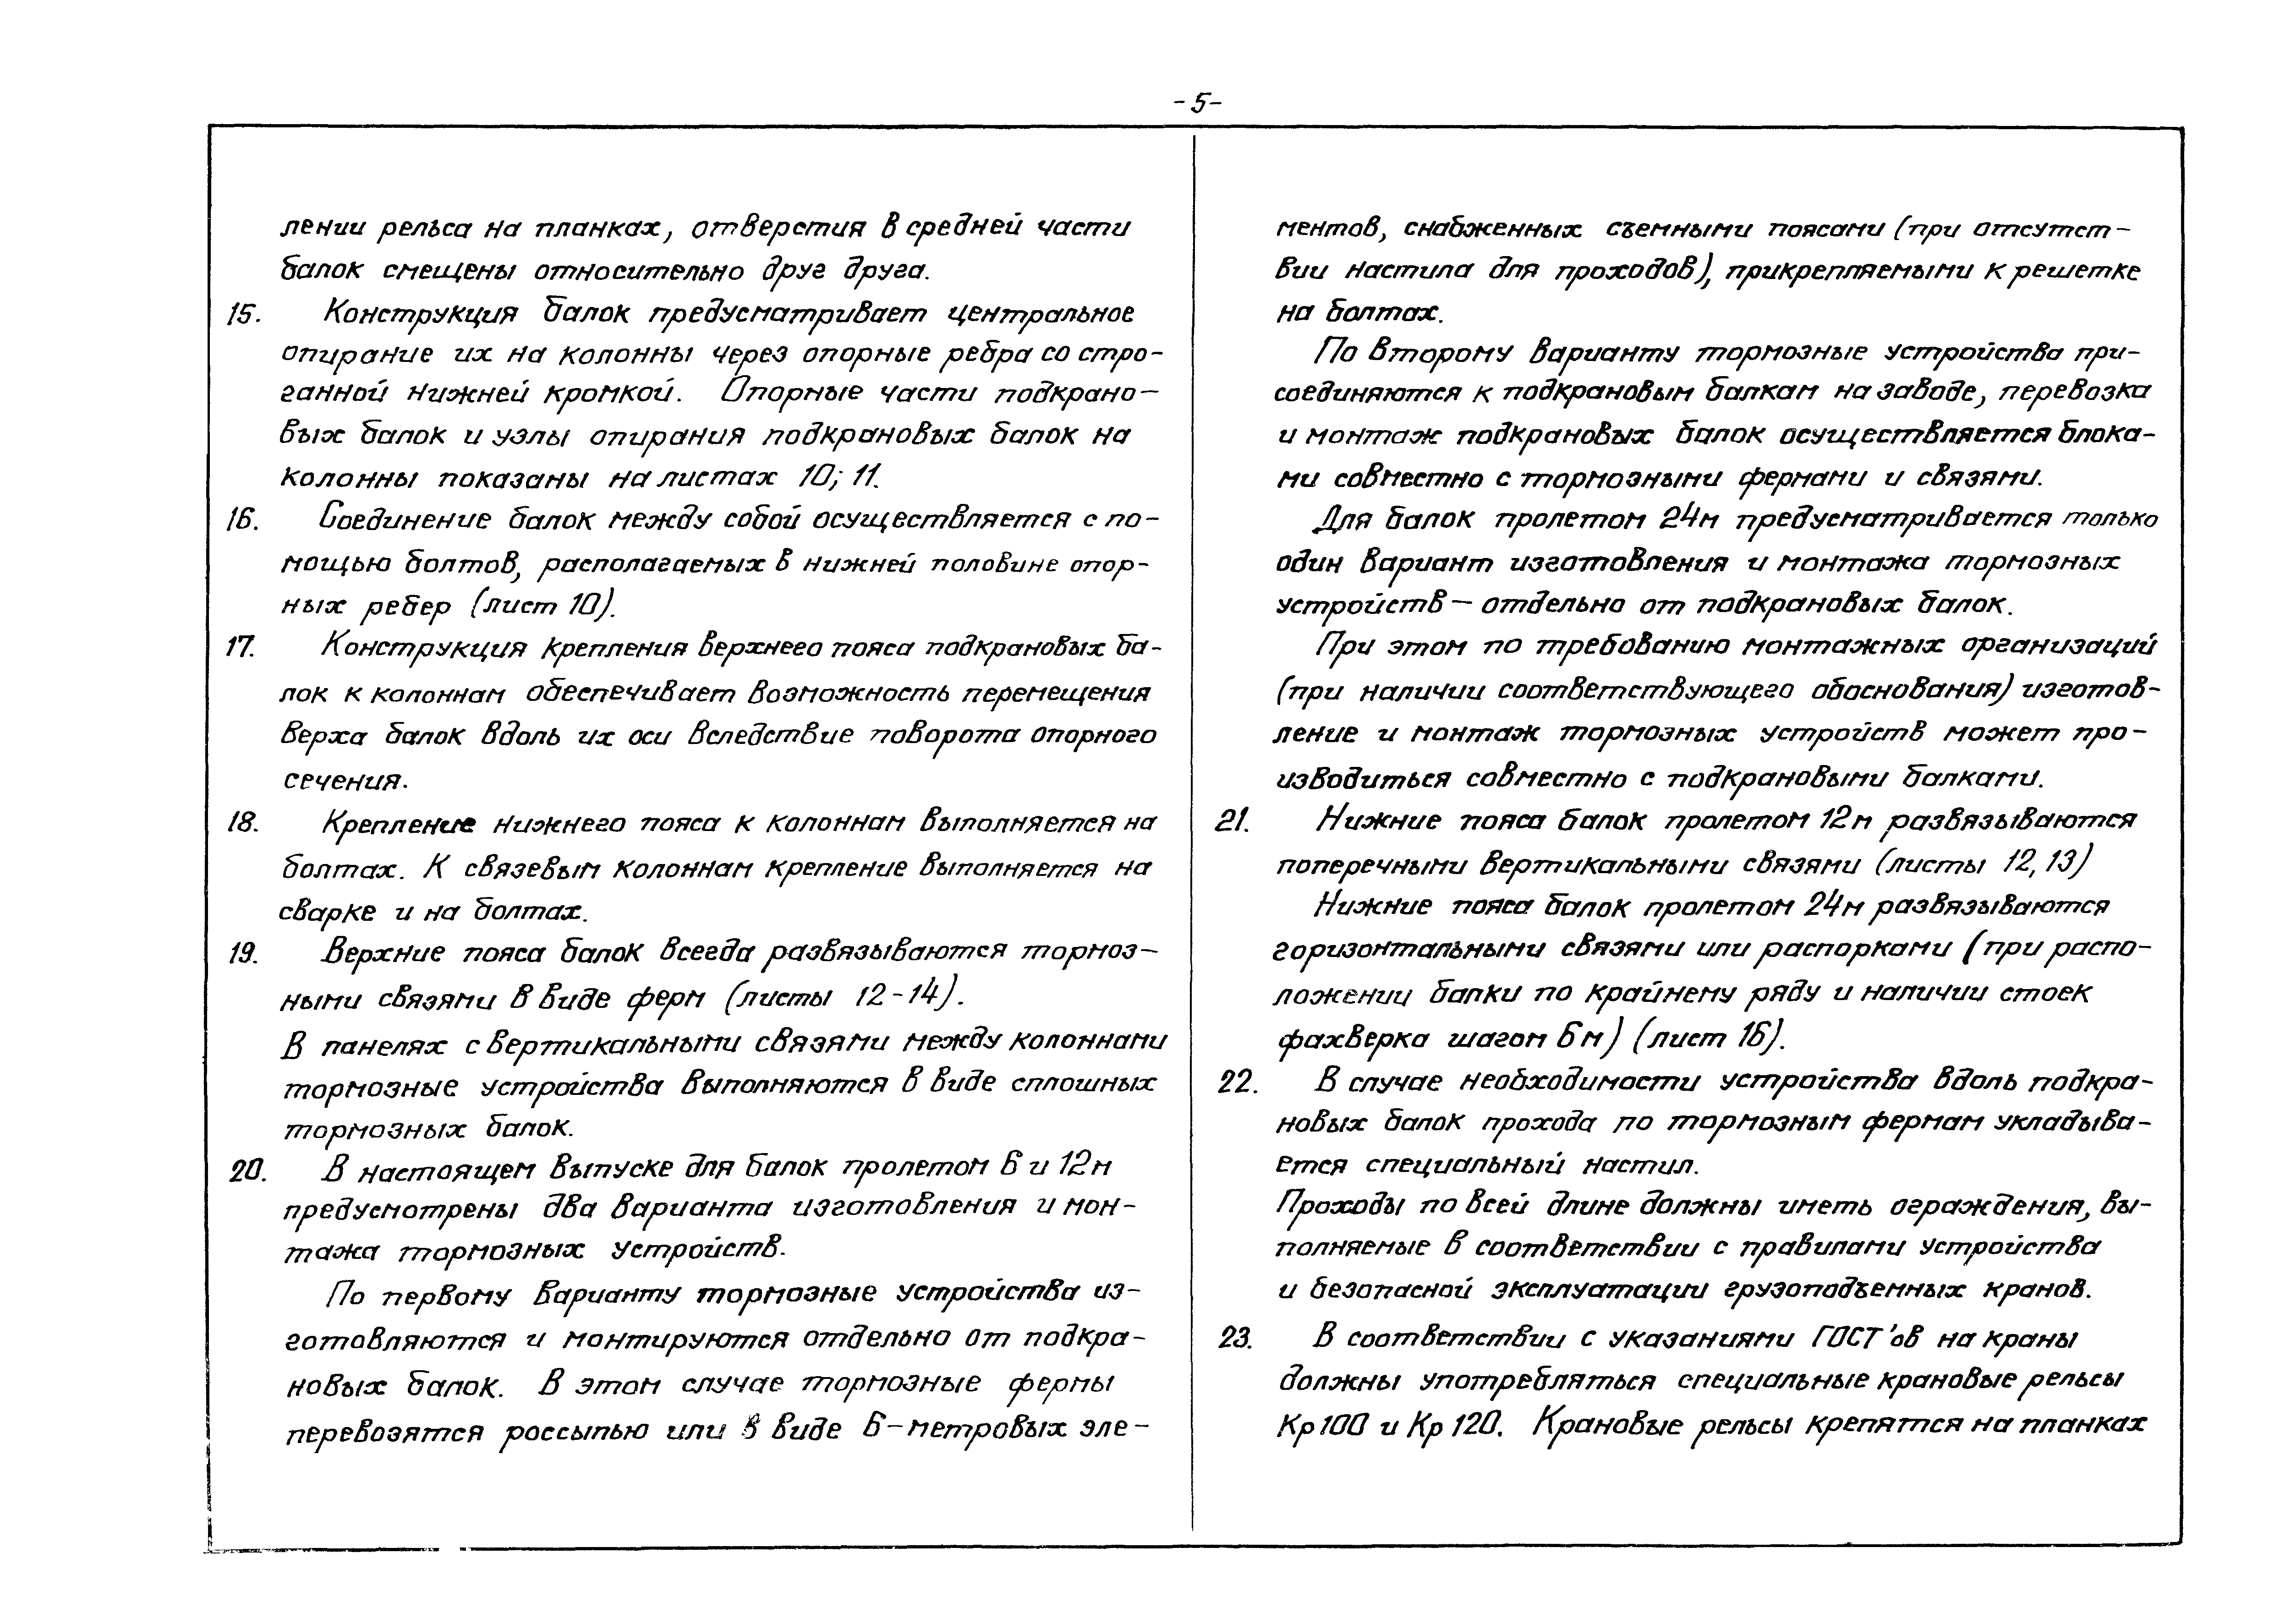 -5-
лении рельса на планках, отверстия в средней части
балок смещены относительно друг друга.
15. Конструкция балок предусматривает центральное
опирание их на колонны через опорные ребра со стро-
ганной нижней кромкой. Опорные части подкрано-
вых балок и узлы опирания подкрановых балок на
колонны показаны на листах 10; 11.
16. Соединение балок между собой осуществляется с по-
мощью болтов, располагаемых в нижней половине опор-
ных ребер (лист 10).
17. Конструкция крепления верхнего пояса подкрановых ба-
лок к колоннам обеспечивает возможность перемещения
верха балок вдоль их оси вследствие поворота опорного
сечения.
18. Крепление нижнего пояса к колоннам выполняется на
болтах. К связевым колоннам крепление выполняется на
сварке и на болтах.
19. Верхние пояса балок всегда развязываются тормоз-
ными связями в виде ферм (листы 12-14).
В панелях с вертикальными связями между колоннами
тормозные устройства выполняются в виде сплошных
тормозных балок.
20. В настоящем выпуске для балок пролетом 6 и 12м
предусмотрены два варианта изготовления и мон-
тажа тормозных устройств.
По первому варианту тормозные устройства из-
готовляются и монтируются отдельно от подкра-
новых балок. В этом случае тормозные фермы
перевозятся россыпью или в виде 6-метровых эле-
ментов, снабженных съемными поясами (при отсутст-
вии настила для проходов), прикрепляемыми к решетке
на болтах.
По второму варианту тормозные устройства при-
соединяются к подкрановым балкам на заводе, перевозка
и монтаж подкрановых балок осуществляется блока-
ми совместно с тормозными фермами и связями.
Для балок пролетом 24м предусматривается только
один вариант изготовления и монтажа тормозных
устройств — отдельно от подкрановых балок.
При этом по требованию монтажных организаций
(при наличии соответствующего обоснования) изготов-
ление и монтаж тормозных устройств может про-
изводиться совместно с подкрановыми балками.
21. Нижние пояса балок пролетом 12м развязываются
поперечными вертикальными связями (листы 12, 13)
Нижние пояса балок пролетом 24м развязываются
горизонтальными связями или распорками (при распо-
ложении балки по крайнему ряду и наличии стоек
фахверка шагом 6м) (лист 16).
22. В случае необходимости устройства вдоль подкра-
новых балок прохода по тормозным фермам укладыва-
ется специальный настил.
Проходы по всей длине должны иметь ограждения, вы-
полняемые в соответствии с правилами устройства
и безопасной эксплуатации грузоподъемных кранов.
23. В соответствии с указаниями ГОСТ'ов на краны
должны употребляться специальные крановые рельсы
Кр100 и Кр120. Крановые рельсы крепятся на планках